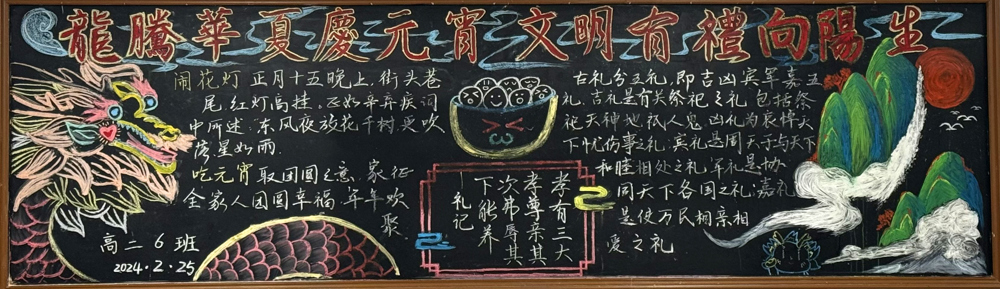 龍騰華夏慶元宵 文明有禮向陽生
闹花灯 正月十五晚上,街头巷
尾,红灯高挂。正如辛弃疾词
中所述:东风夜放花千树,更吹
落星如雨.
吃元宵 取团圆之意,家征
全家人团圆幸福,年年欢
聚.
高二6班
2024.2.25
孝有三大
孝尊亲其
次弗辱其
下能养
—礼记
古礼分五礼,即吉凶宾军嘉五
礼.吉礼是有关祭祀之礼,包括祭
祀天神地祇人鬼,凶礼为哀悼天
下忧伤事之礼,宾礼是周天子与天下
和睦相处之礼,军礼是协
同天下各国之礼,嘉礼
是使万民相亲相
爱之礼